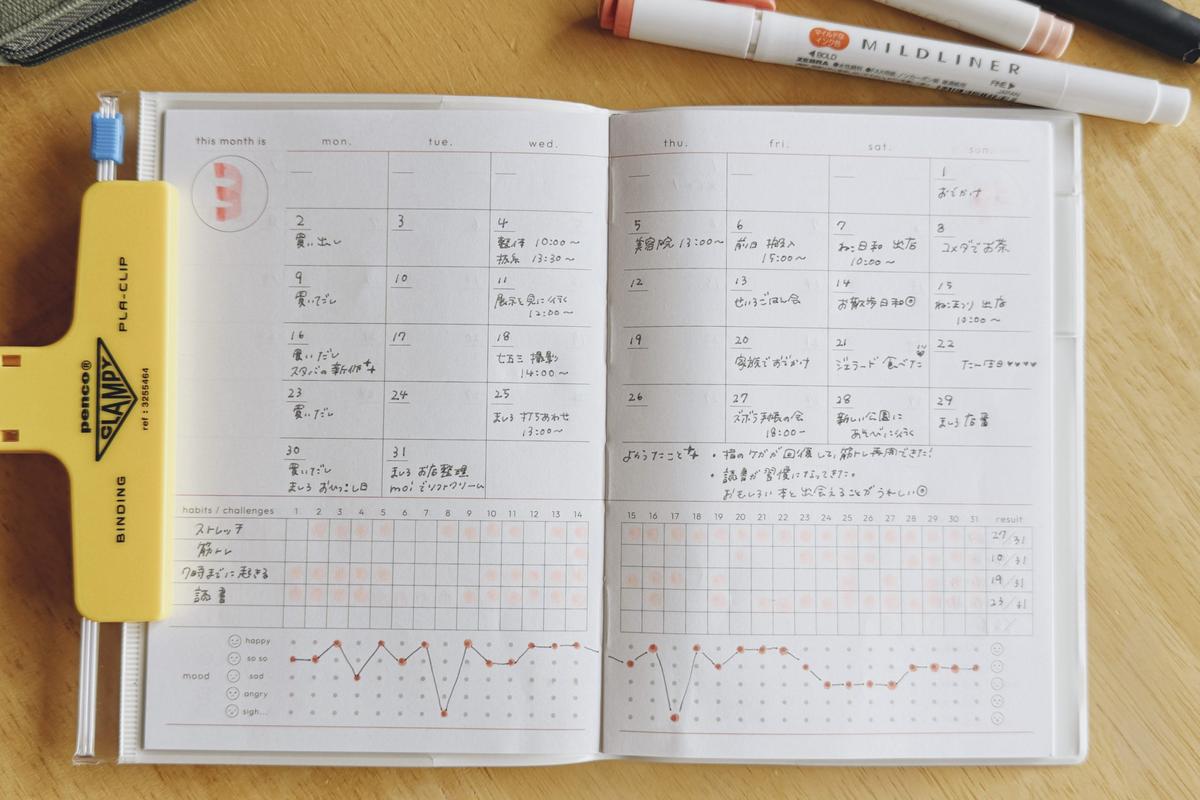 マイルドな
インク色
MILDLINER
BOLD
ZEBRA
FINE
JAPAN
PLA-CLIP
penco®
CLAMPY
ref : 3255464
BINDING
this month is
3
mon. tue. wed. thu. fri. sat. sun.
1
おでかけ
2
買い出し
3
4
10:00〜
13:30〜
5
美容院 13:00〜
6
前日 搬入
15:00〜
7
ねこ日和 出店
10:00〜
8
コメダでお茶
9
買いだし
10
11
展示を見に行く
12:00〜
12
13
せいろごはん会
14
お散歩日和
15
ねこまつり 出店
10:00〜
16
買いだし
スタバの新作
17
18
七五三 撮影
14:00〜
19
20
家族でおでかけ
21
ジェラード 食べた
22
23
買いだし
24
25
ましろ 打ちあわせ
13:00〜
26
27
ズボラ手帳の会
18:00〜
28
新しい公園に
あそびに行く
29
ましろ 店番
30
買いだし
ましろ おひっこし日
31
ましろ お店整理
moi でソフトクリーム
よかったこと
・指のケガが回復して、筋トレ再開できた!
・読書が習慣になってきた。
おもしろい本と出会えることがうれしい
habits / challenges 1 2 3 4 5 6 7 8 9 10 11 12 13 14 15 16 17 18 19 20 21 22 23 24 25 26 27 28 29 30 31 result
ストレッチ 27/31
筋トレ 10/31
7時までに起きる 19/31
読書 23/31
mood
happy
so so
sad
angry
sigh...